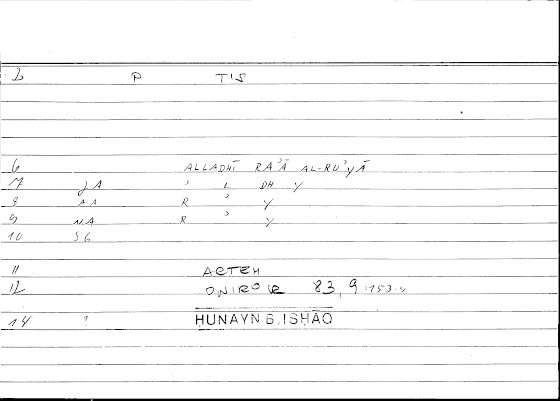 2 P TIS
6 ALLADHĪ RAʾĀ AL-RUʾYĀ
7 JA ʾ L DH Y
8 AA R ʾ Y
9 NA R ʾ Y
10 SG
11 ARTEM
12 ONIROCR 83, 9
14 ? ḤUNAYN B. ISḤĀQ